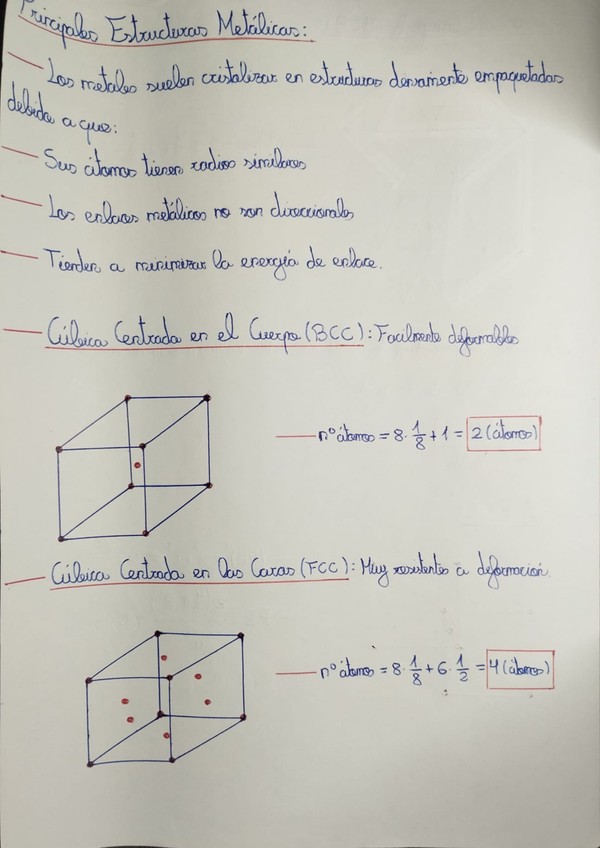 Principales Estructuras Metálicas:
Los metales suelen cristalizar en estructuras densamente empaquetadas
debido a que:
Sus átomos tienen radios similares
Los enlaces metálicos no son direccionales
Tienden a minimizar la energía de enlace.
Cúbica Centrada en el Cuerpo (BCC): Facilmente deformables
nº átomos = 8 · 1/8 + 1 = 2 (átomos)
Cúbica Centrada en las Caras (FCC): Muy resistentes a deformación.
nº átomos = 8 · 1/8 + 6 · 1/2 = 4 (átomos)